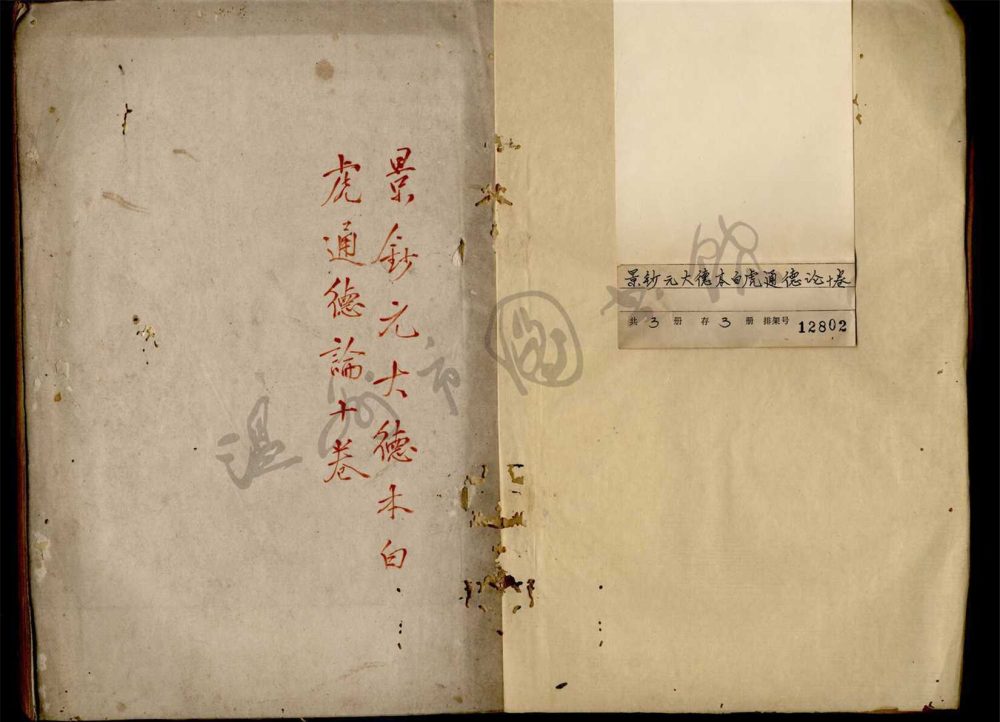 景鈔元大德本白
虎通德論十卷
景钞元大德本白虎通德论十卷
共 3 册 存 3 册 排架号 12802
温州市图书馆